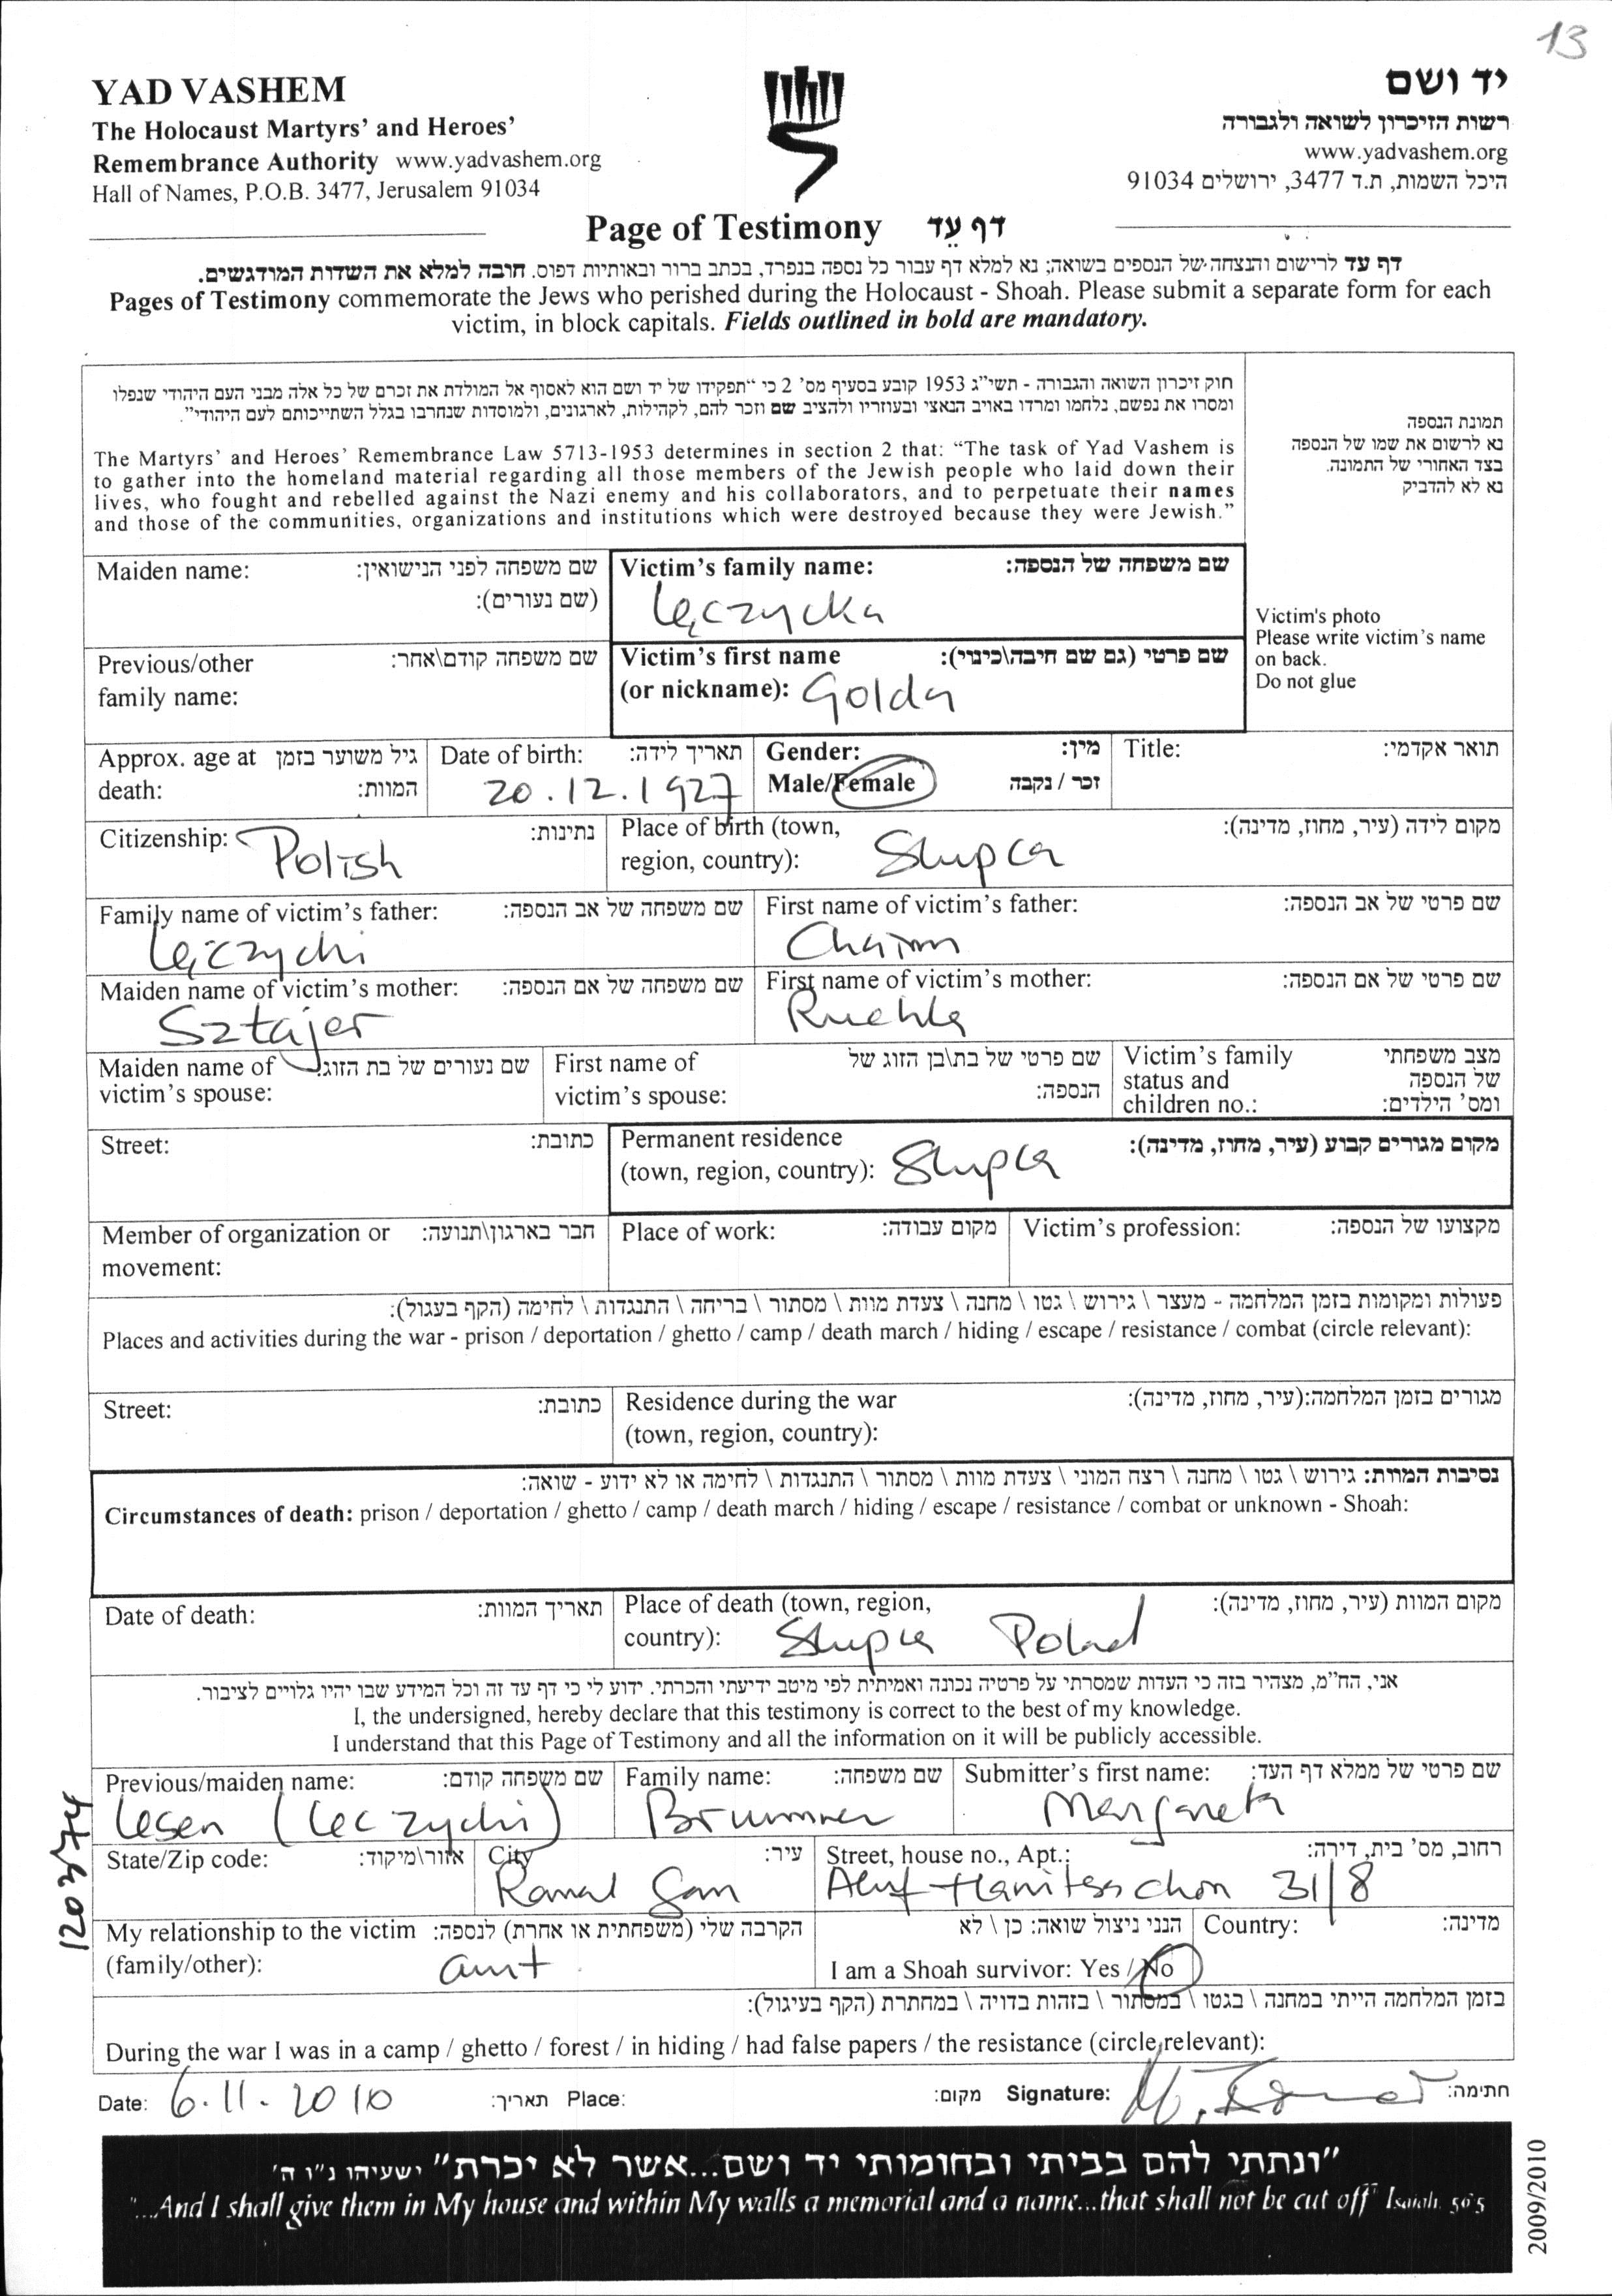 13
YAD VASHEM
The Holocaust Martyrs' and Heroes'
Remembrance Authority www.yadvashem.org
Hall of Names, P.O.B. 3477, Jerusalem 91034
יד ושם
רשות הזיכרון לשואה ולגבורה
www.yadvashem.org
היכל השמות, ת.ד 3477, ירושלים 91034
Page of Testimony דף עֵד
דף עד לרישום והנצחה של הנספים בשואה; נא למלא דף עבור כל נספה בנפרד, בכתב ברור ובאותיות דפוס. חובה למלא את השדות המודגשים.
Pages of Testimony commemorate the Jews who perished during the Holocaust - Shoah. Please submit a separate form for each
victim, in block capitals. Fields outlined in bold are mandatory.
חוק זיכרון השואה והגבורה - תשי"ג 1953 קובע בסעיף מס' 2 כי "תפקידו של יד ושם הוא לאסוף אל המולדת את זכרם של כל אלה מבני העם היהודי שנפלו
ומסרו את נפשם, נלחמו ומרדו באויב הנאצי ובעוזריו ולהציב שם וזכר להם, לקהילות, לארגונים, ולמוסדות שנחרבו בגלל השתייכותם לעם היהודי".
The Martyrs' and Heroes' Remembrance Law 5713-1953 determines in section 2 that: "The task of Yad Vashem is
to gather into the homeland material regarding all those members of the Jewish people who laid down their
lives, who fought and rebelled against the Nazi enemy and his collaborators, and to perpetuate their names
and those of the communities, organizations and institutions which were destroyed because they were Jewish."
תמונת הנספה
נא לרשום את שמו של הנספה
בצד האחורי של התמונה.
נא לא להדביק
Victim's photo
Please write victim's name
on back.
Do not glue
Maiden name: שם משפחה לפני הנישואין:
(שם נעורים):
Victim's family name: שם משפחה של הנספה:
Łęczycka
Previous/other שם משפחה קודם\אחר:
family name:
Victim's first name שם פרטי (גם שם חיבה\כינוי):
(or nickname): Golda
Approx. age at גיל משוער בזמן
death: המוות:
Date of birth: תאריך לידה:
20.12.1927
Gender: מין:
Male/Female זכר / נקבה
Title: תואר אקדמי:
Citizenship: נתינות:
Polish
Place of birth (town, מקום לידה (עיר, מחוז, מדינה):
region, country): Słupca
Family name of victim's father: שם משפחה של אב הנספה:
Łęczycki
First name of victim's father: שם פרטי של אב הנספה:
Chaim
Maiden name of victim's mother: שם משפחה של אם הנספה:
Sztajer
First name of victim's mother: שם פרטי של אם הנספה:
Ruchla
Maiden name of שם נעורים של בת הזוג:
victim's spouse:
First name of שם פרטי של בת\בן הזוג של
victim's spouse: הנספה:
Victim's family מצב משפחתי
status and של הנספה
children no.: ומס' הילדים:
Street: כתובת:
Permanent residence מקום מגורים קבוע (עיר, מחוז, מדינה):
(town, region, country): Słupca
Member of organization or חבר בארגון\תנועה:
movement:
Place of work: מקום עבודה:
Victim's profession: מקצועו של הנספה:
פעולות ומקומות בזמן המלחמה - מעצר \ גירוש \ גטו \ מחנה \ צעדת מוות \ מסתור \ בריחה \ התנגדות \ לחימה (הקף בעגול):
Places and activities during the war - prison / deportation / ghetto / camp / death march / hiding / escape / resistance / combat (circle relevant):
Street: כתובת:
Residence during the war מגורים בזמן המלחמה:(עיר, מחוז, מדינה):
(town, region, country):
נסיבות המוות: גירוש \ גטו \ מחנה \ רצח המוני \ צעדת מוות \ מסתור \ התנגדות \ לחימה או לא ידוע - שואה:
Circumstances of death: prison / deportation / ghetto / camp / death march / hiding / escape / resistance / combat or unknown - Shoah:
Date of death: תאריך המוות:
Place of death (town, region, מקום המוות (עיר, מחוז, מדינה):
country): Słupca Poland
אני, הח"מ, מצהיר בזה כי העדות שמסרתי על פרטיה נכונה ואמיתית לפי מיטב ידיעתי והכרתי. ידוע לי כי דף עד זה וכל המידע שבו יהיו גלויים לציבור.
I, the undersigned, hereby declare that this testimony is correct to the best of my knowledge.
I understand that this Page of Testimony and all the information on it will be publicly accessible.
Previous/maiden name: שם משפחה קודם:
Lesen (Leczycki)
Family name: שם משפחה:
Brummer
Submitter's first name: שם פרטי של ממלא דף העד:
Margareta
State/Zip code: אזור\מיקוד:
City עיר:
Ramat Gan
Street, house no., Apt.: רחוב, מס' בית, דירה:
Aluf Hanitsachon 31/8
My relationship to the victim הקרבה שלי (משפחתית או אחרת) לנספה:
(family/other): aunt
הנני ניצול שואה: כן \ לא
I am a Shoah survivor: Yes / No
Country: מדינה:
בזמן המלחמה הייתי במחנה \ בגטו \ במסתור \ בזהות בדויה \ במחתרת (הקף בעיגול):
During the war I was in a camp / ghetto / forest / in hiding / had false papers / the resistance (circle relevant):
Date: 6.11.2010 תאריך: Place: מקום: Signature: חתימה:
"ונתתי להם בביתי ובחומותי יד ושם...אשר לא יכרת" ישעיהו נ"ו ה'
"...And I shall give them in My house and within My walls a memorial and a name...that shall not be cut off" Isaiah. 56'5
2009/2010